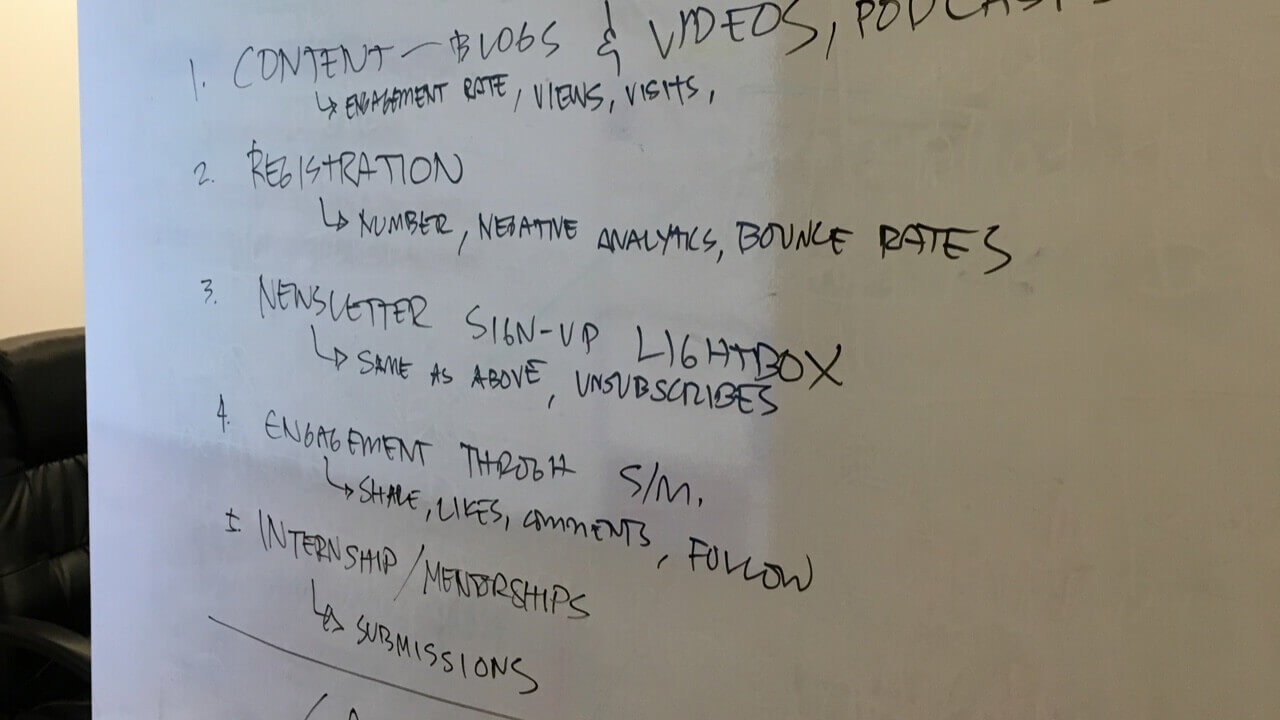 1. CONTENT — BLOGS & VIDEOS, PODCASTS
↳ ENGAGEMENT RATE, VIEWS, VISITS,
2. REGISTRATION
↳ NUMBER, NEGATIVE ANALYTICS, BOUNCE RATES
3. NEWSLETTER SIGN-UP LIGHTBOX
↳ SAME AS ABOVE, UNSUBSCRIBES
4. ENGAGEMENT THROUGH S/M.
↳ SHARE, LIKES, COMMENTS, FOLLOW
5. INTERNSHIP/MENTORSHIPS
↳ SUBMISSIONS